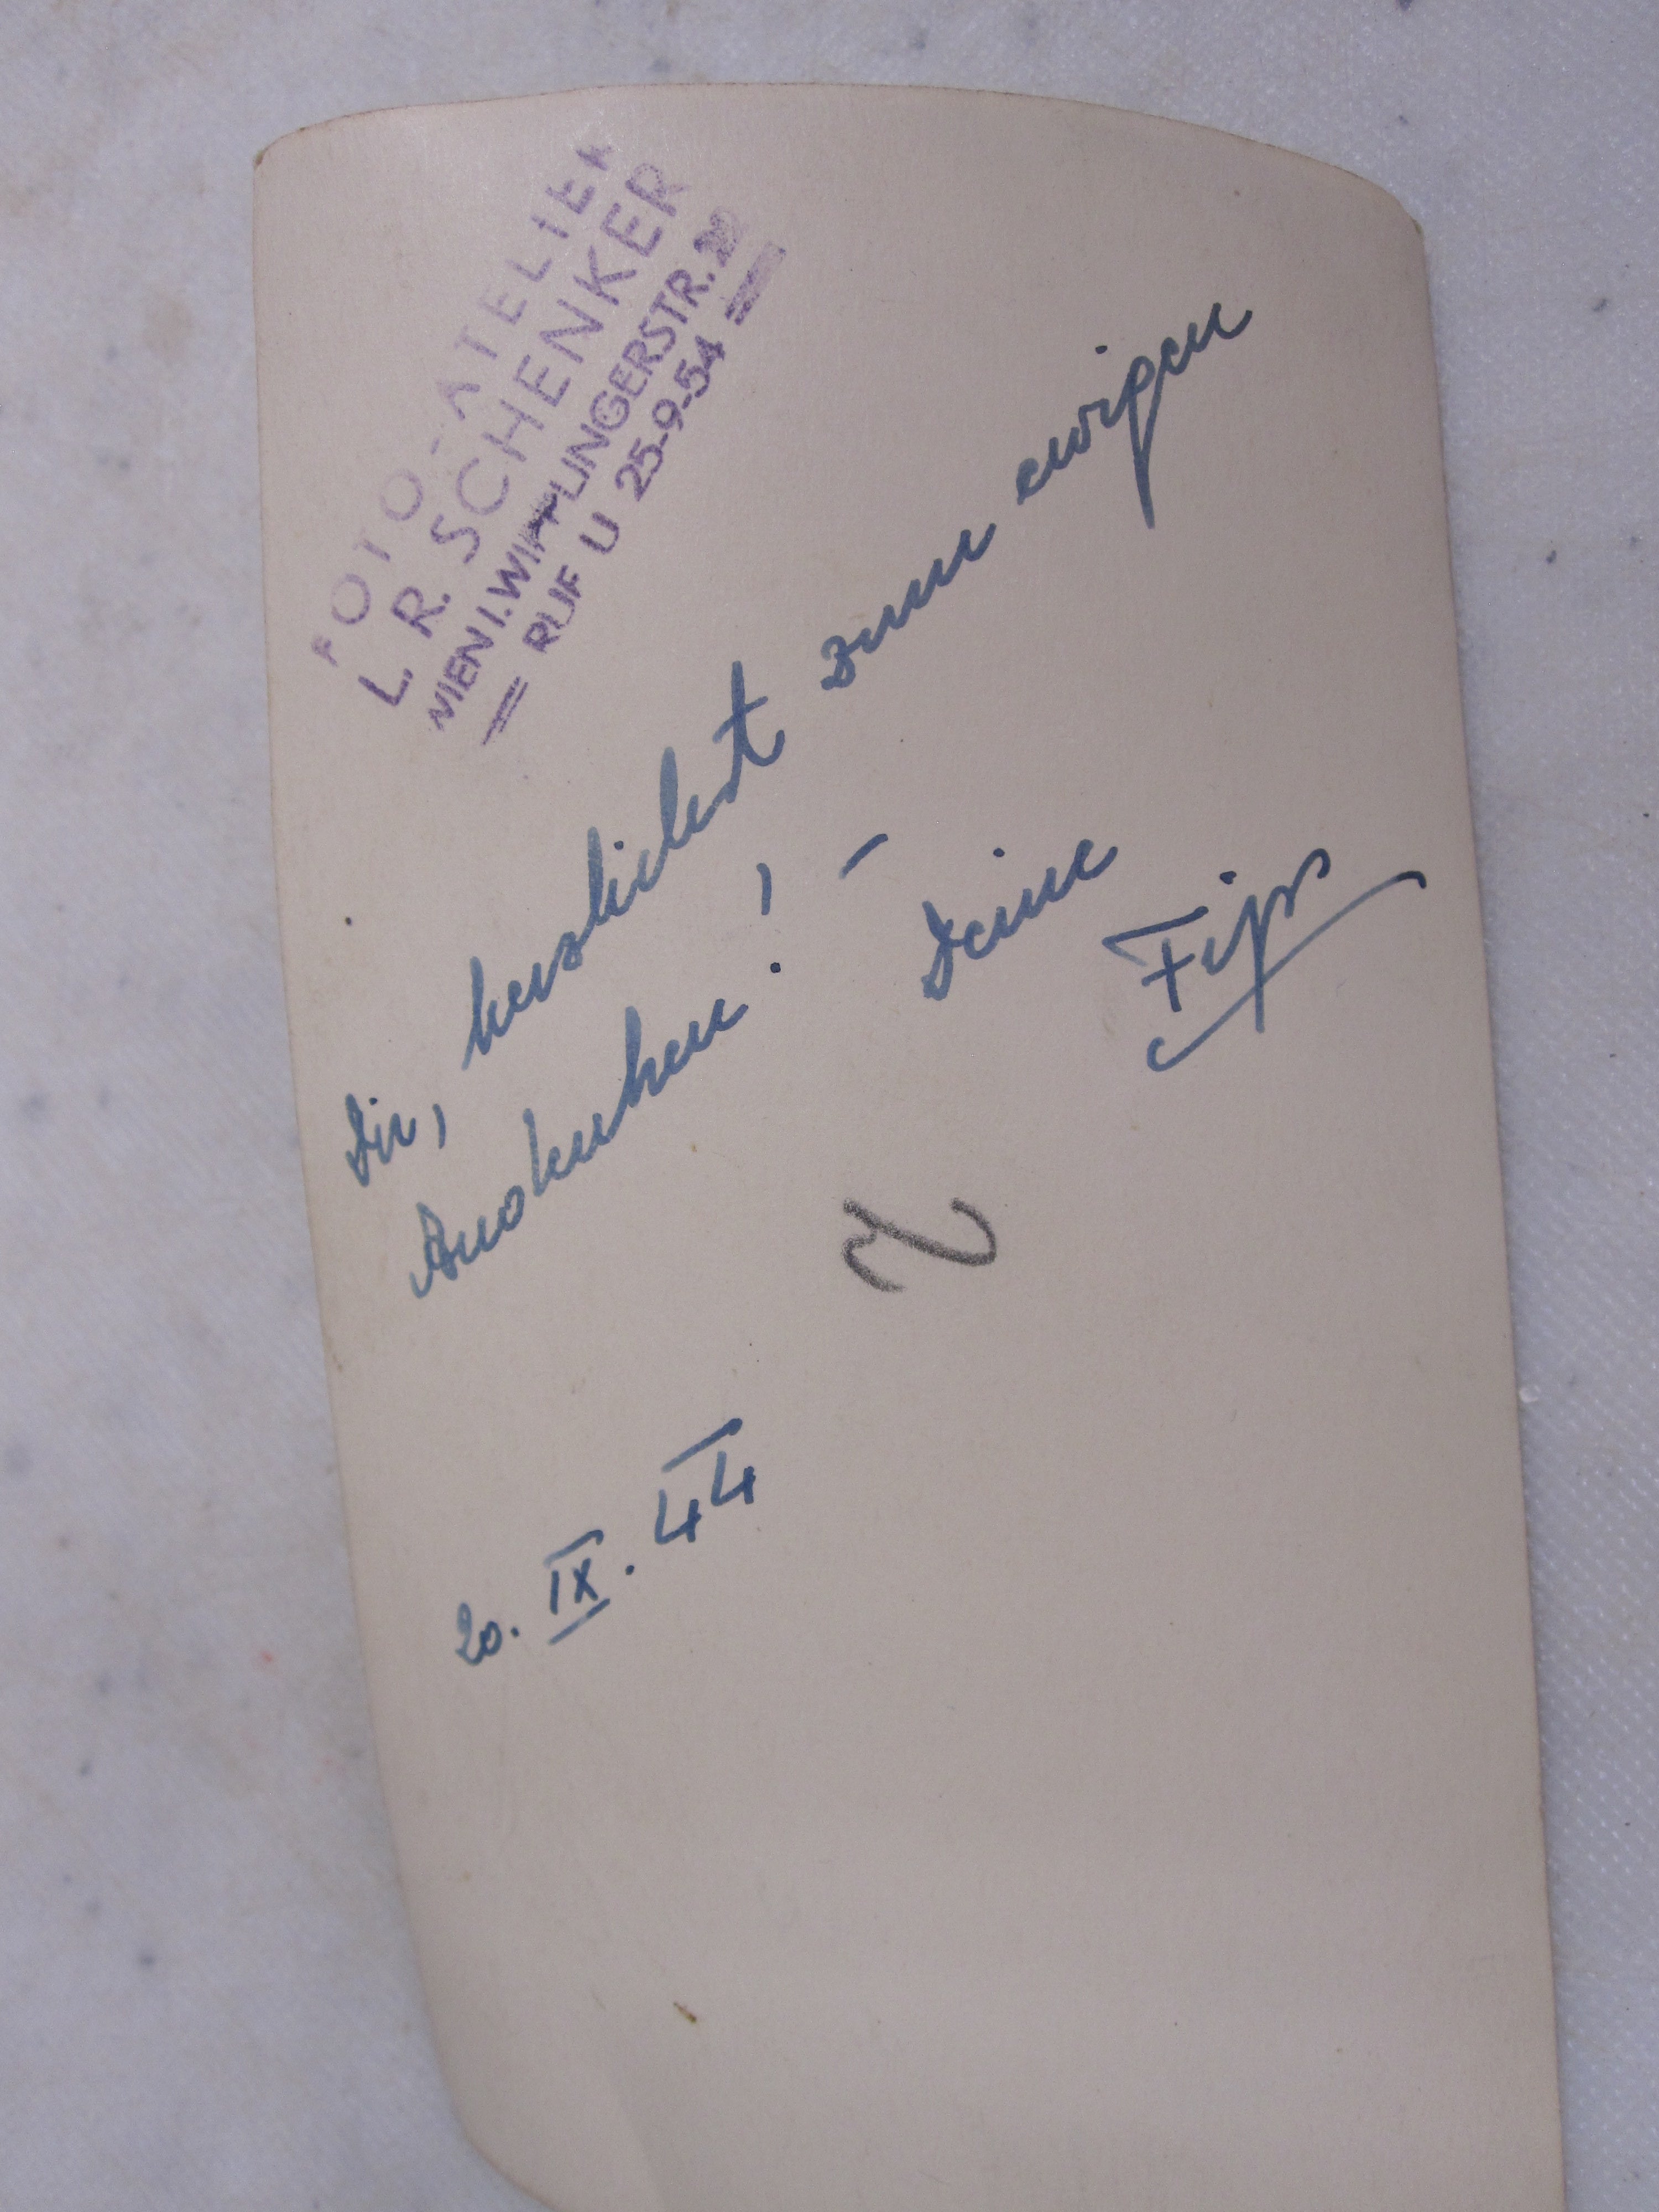 FOTO-ATELIER
L. R. SCHENKER
WIEN I. WIPPLINGERSTR.
RUF U 25-9-54
Dir, herzlichst zum ewigen
Andenken! - Deine
Fips
20. IX. 44